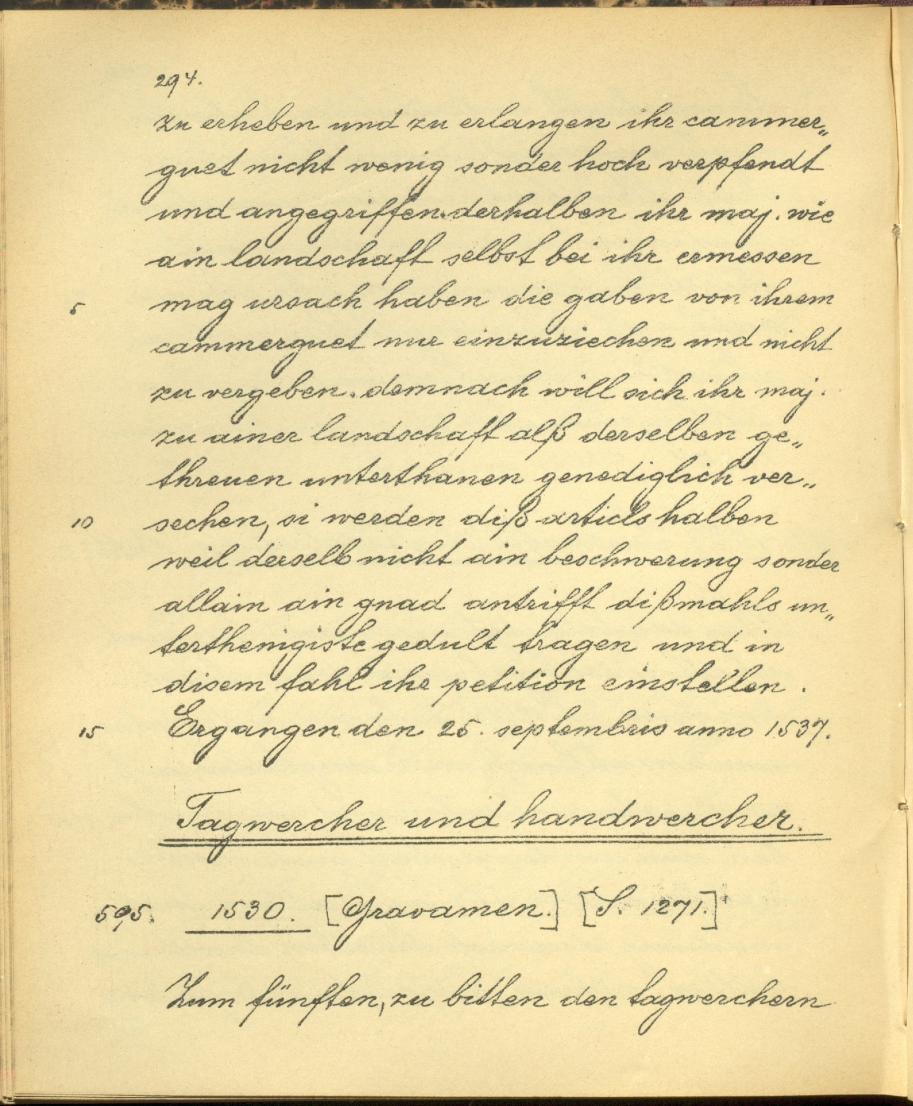 294.
zu erheben und zu erlangen ihr cammer„
guet nicht wenig sonder hoch verpfendt
und angegriffen. derhalben ihr maj. wie
ain landschaft selbst bei ihr ermessen
5 mag ursach haben die gaben von ihrem
cammerguet nur einzuziechen und nicht
zu vergeben. demnach will sich ihr maj.
zu ainer landschaft alß derselben ge„
threuen unterthanen genediglich ver„
10 sechen, si werden diß articls halben
weil derselb nicht ain beschwerung sonder
allain ain gnad antrifft dißmahls un„
terthenigiste gedult tragen und in
disem fahl ihr petition einstellen.
15 Ergangen den 25. septembris anno 1537.
Tagwercher und handwercher.
595. 1530. [Gravamen.] [S. 1271.]
Zum fünften, zu bitten den tagwerchern